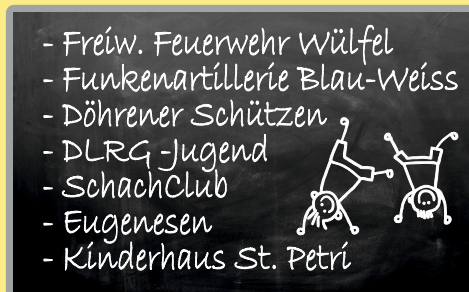 - Freiw. Feuerwehr Wülfel
- Funkenartillerie Blau-Weiss
- Döhrener Schützen
- DLRG -Jugend
- SchachClub
- Eugenesen
- Kinderhaus St. Petri